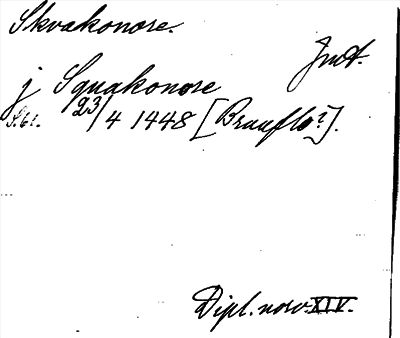 Skvakonore.
Jmt.
j Squakonore
S. 61. 23/4 1448 [Brunflo?].
Dipl. norv. XIV.